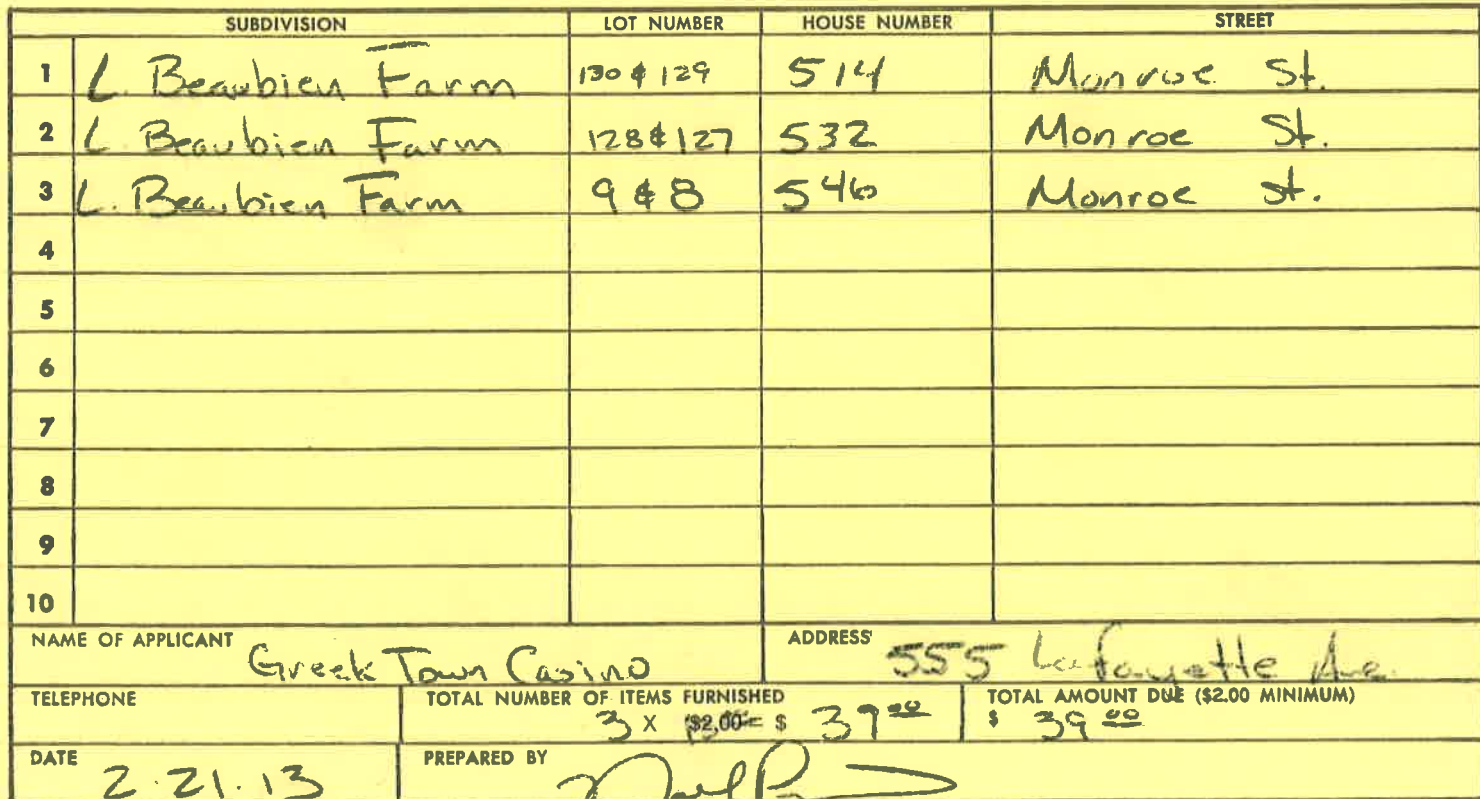 SUBDIVISION LOT NUMBER HOUSE NUMBER STREET
1 L. Beaubien Farm 130 & 129 514 Monroe St.
2 L. Beaubien Farm 128 & 127 532 Monroe St.
3 L. Beaubien Farm 9 & 8 546 Monroe St.
4
5
6
7
8
9
10
NAME OF APPLICANT Greek Town Casino ADDRESS 555 Lafayette Ave.
TELEPHONE TOTAL NUMBER OF ITEMS FURNISHED TOTAL AMOUNT DUE ($2.00 MINIMUM)
3 X $2.00 = $ 39.00 $ 39.00
DATE 2.21.13 PREPARED BY